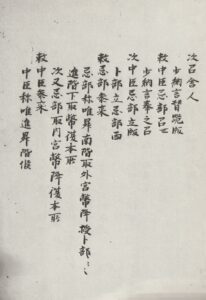 次召舎人
少納言替就版
勅中臣忌部召之
少納言奉之召
次中臣忌部立版
卜部立忌部西
勅忌部参来
忌部称唯昇南階取外宮幣降授卜部〻
進階下取幣復本所
次又忌部取内宮幣降復本所
勅中臣参来
中臣称唯進昇階候